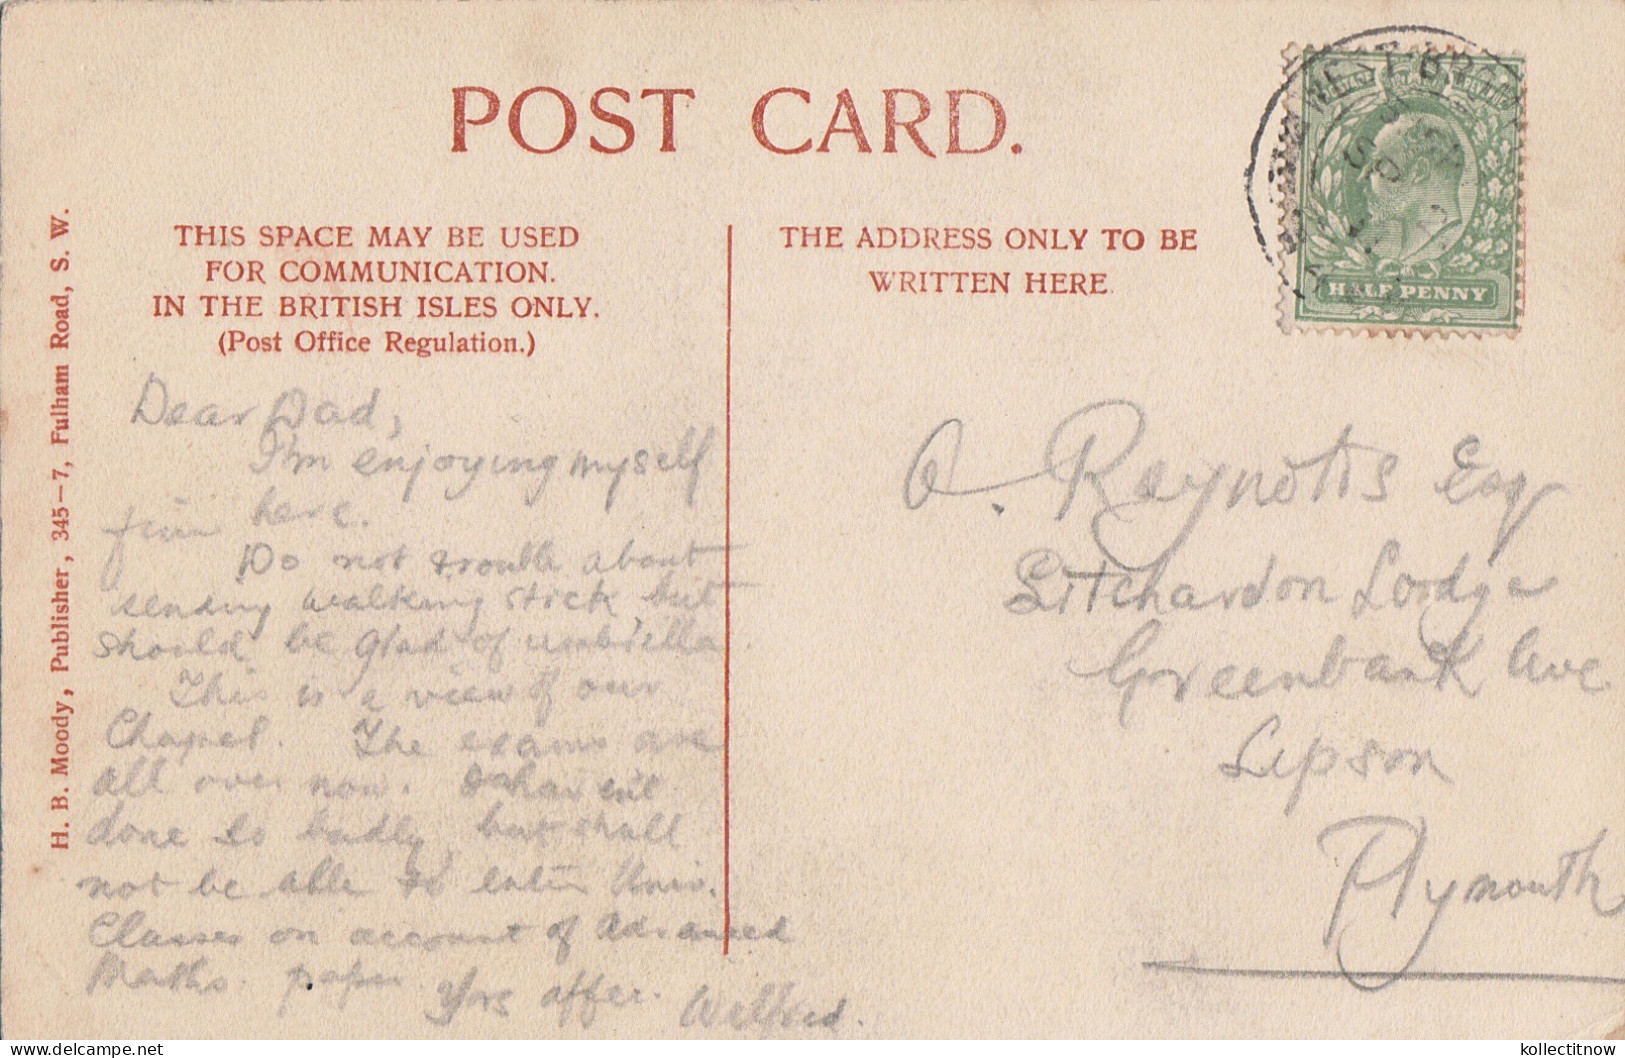 POST CARD.
THIS SPACE MAY BE USED
FOR COMMUNICATION.
IN THE BRITISH ISLES ONLY.
(Post Office Regulation.)
THE ADDRESS ONLY TO BE
WRITTEN HERE
H. B. Moody, Publisher, 345-7, Fulham Road, S. W.
HALFPENNY
Dear Dad,
I'm enjoying myself
fine here.
Do not trouble about
sending walking stick, but
should be glad of umbrella.
This is a view of our
Chapel. The exams are
all over now. I haven't
done so badly, but shall
not be able to enter Univ.
Classes on account of Advanced
Maths. paper. Yrs affec. Welford.
A. Reynolds Esq
Litchardon Lodge
Greenbank Ave
Lipson
Plymouth
kollectitnow